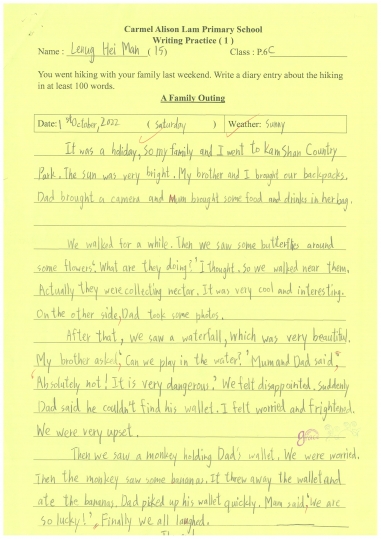 Carmel Alison Lam Primary School
Writing Practice ( 1 )
Name : Leung Hei Man ( 15 ) Class : P.6C
You went hiking with your family last weekend. Write a diary entry about the hiking
in at least 100 words.
A Family Outing
Date: 1st October, 2022 ( Saturday ) Weather: Sunny
It was a holiday, so my family and I went to Kam Shan Country
Park. The sun was very bright. My brother and I brought our backpacks.
Dad brought a camera and Mum brought some food and drinks in her bag.
We walked for a while. Then we saw some butterflies around
some flowers. 'What are they doing?' I thought. So we walked near them.
Actually they were collecting nectar. It was very cool and interesting.
On the other side, Dad took some photos.
After that, we saw a waterfall, which was very beautiful.
My brother asked, 'Can we play in the water?' Mum and Dad said,
'Absolutely not! It is very dangerous.' We felt disappointed. Suddenly
Dad said he couldn't find his wallet. I felt worried and frightened.
We were very upset.
Then we saw a monkey holding Dad's wallet. We were worried.
Then the monkey saw some bananas. It threw away the wallet and
ate the bananas. Dad picked up his wallet quickly. Mum said, 'We are
so lucky!' Finally we all laughed.